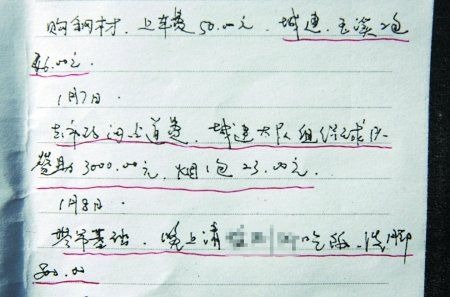 购钢材，上车费50.00元，城建，玉溪2包
46.00元.
1月7日.
去市政问道，城建大队组织球队
赞助3000.00元，烟1包23.00元.
1月8日
禁吊基础，晚上请吃饭、洗脚
800.00